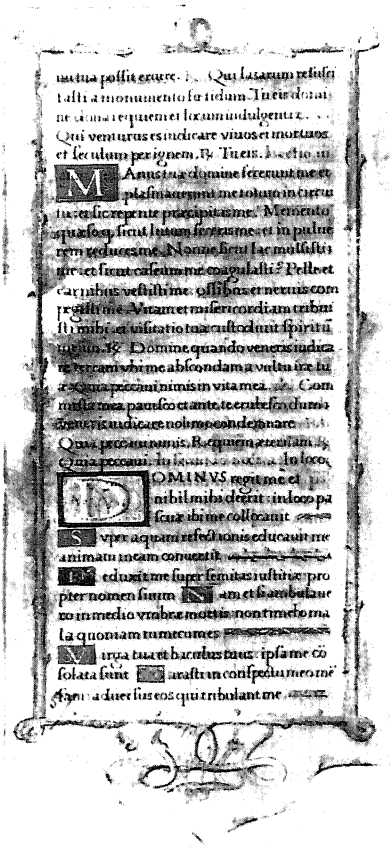 nu tua possit eruere. ℟. Qui lasarum resusci
tasti a monumento foetidum. Tu eis domi
ne dona requiem et locum indulgentiæ.
Qui venturus es iudicare viuos et mortuos
et seculum per ignem. ℟. Tu eis. Lectio iii
Manus tuæ domine fecerunt me et
plasmauerunt me totum in circui
tu: et sic repente præcipitas me. Memento
quæso q, sicut lutum feceris me: et in pulue
rem reduces me. Nonne sicut lac mulsisti
me: et sicut caseum me coagulasti? Pelle et
carnibus vestisti me: ossibus et neruis com
pegisti me. Vitam et misericordiam tribui
sti mihi: et visitatio tua custodiuit spiritū
meum. ℟. Domine quando veneris iudica
re terram vbi me abscondam a vultu iræ tu
æ. Quia peccaui nimis in vita mea. Com
missa mea pauesco et ante te erubesco: dum
veneris iudicare noli me condemnare.
Quia peccaui nimis. ℟. Requiem æternam.
Quia peccaui. In loco
DOMINVS regit me et
nihil mihi deerit: in loco pa
scuæ ibi me collocauit
Super aquam refectionis educauit me
animam meam conuertit
Deduxit me super semitas iustitiæ: pro
pter nomen suum Nam et si ambulaue
ro in medio vmbræ mortis: non timebo ma
la quoniam tu mecum es
Virga tua et baculus tuus: ipsa me cō
solata sunt Parasti in conspectu meo mē
sam: aduersus eos qui tribulant me